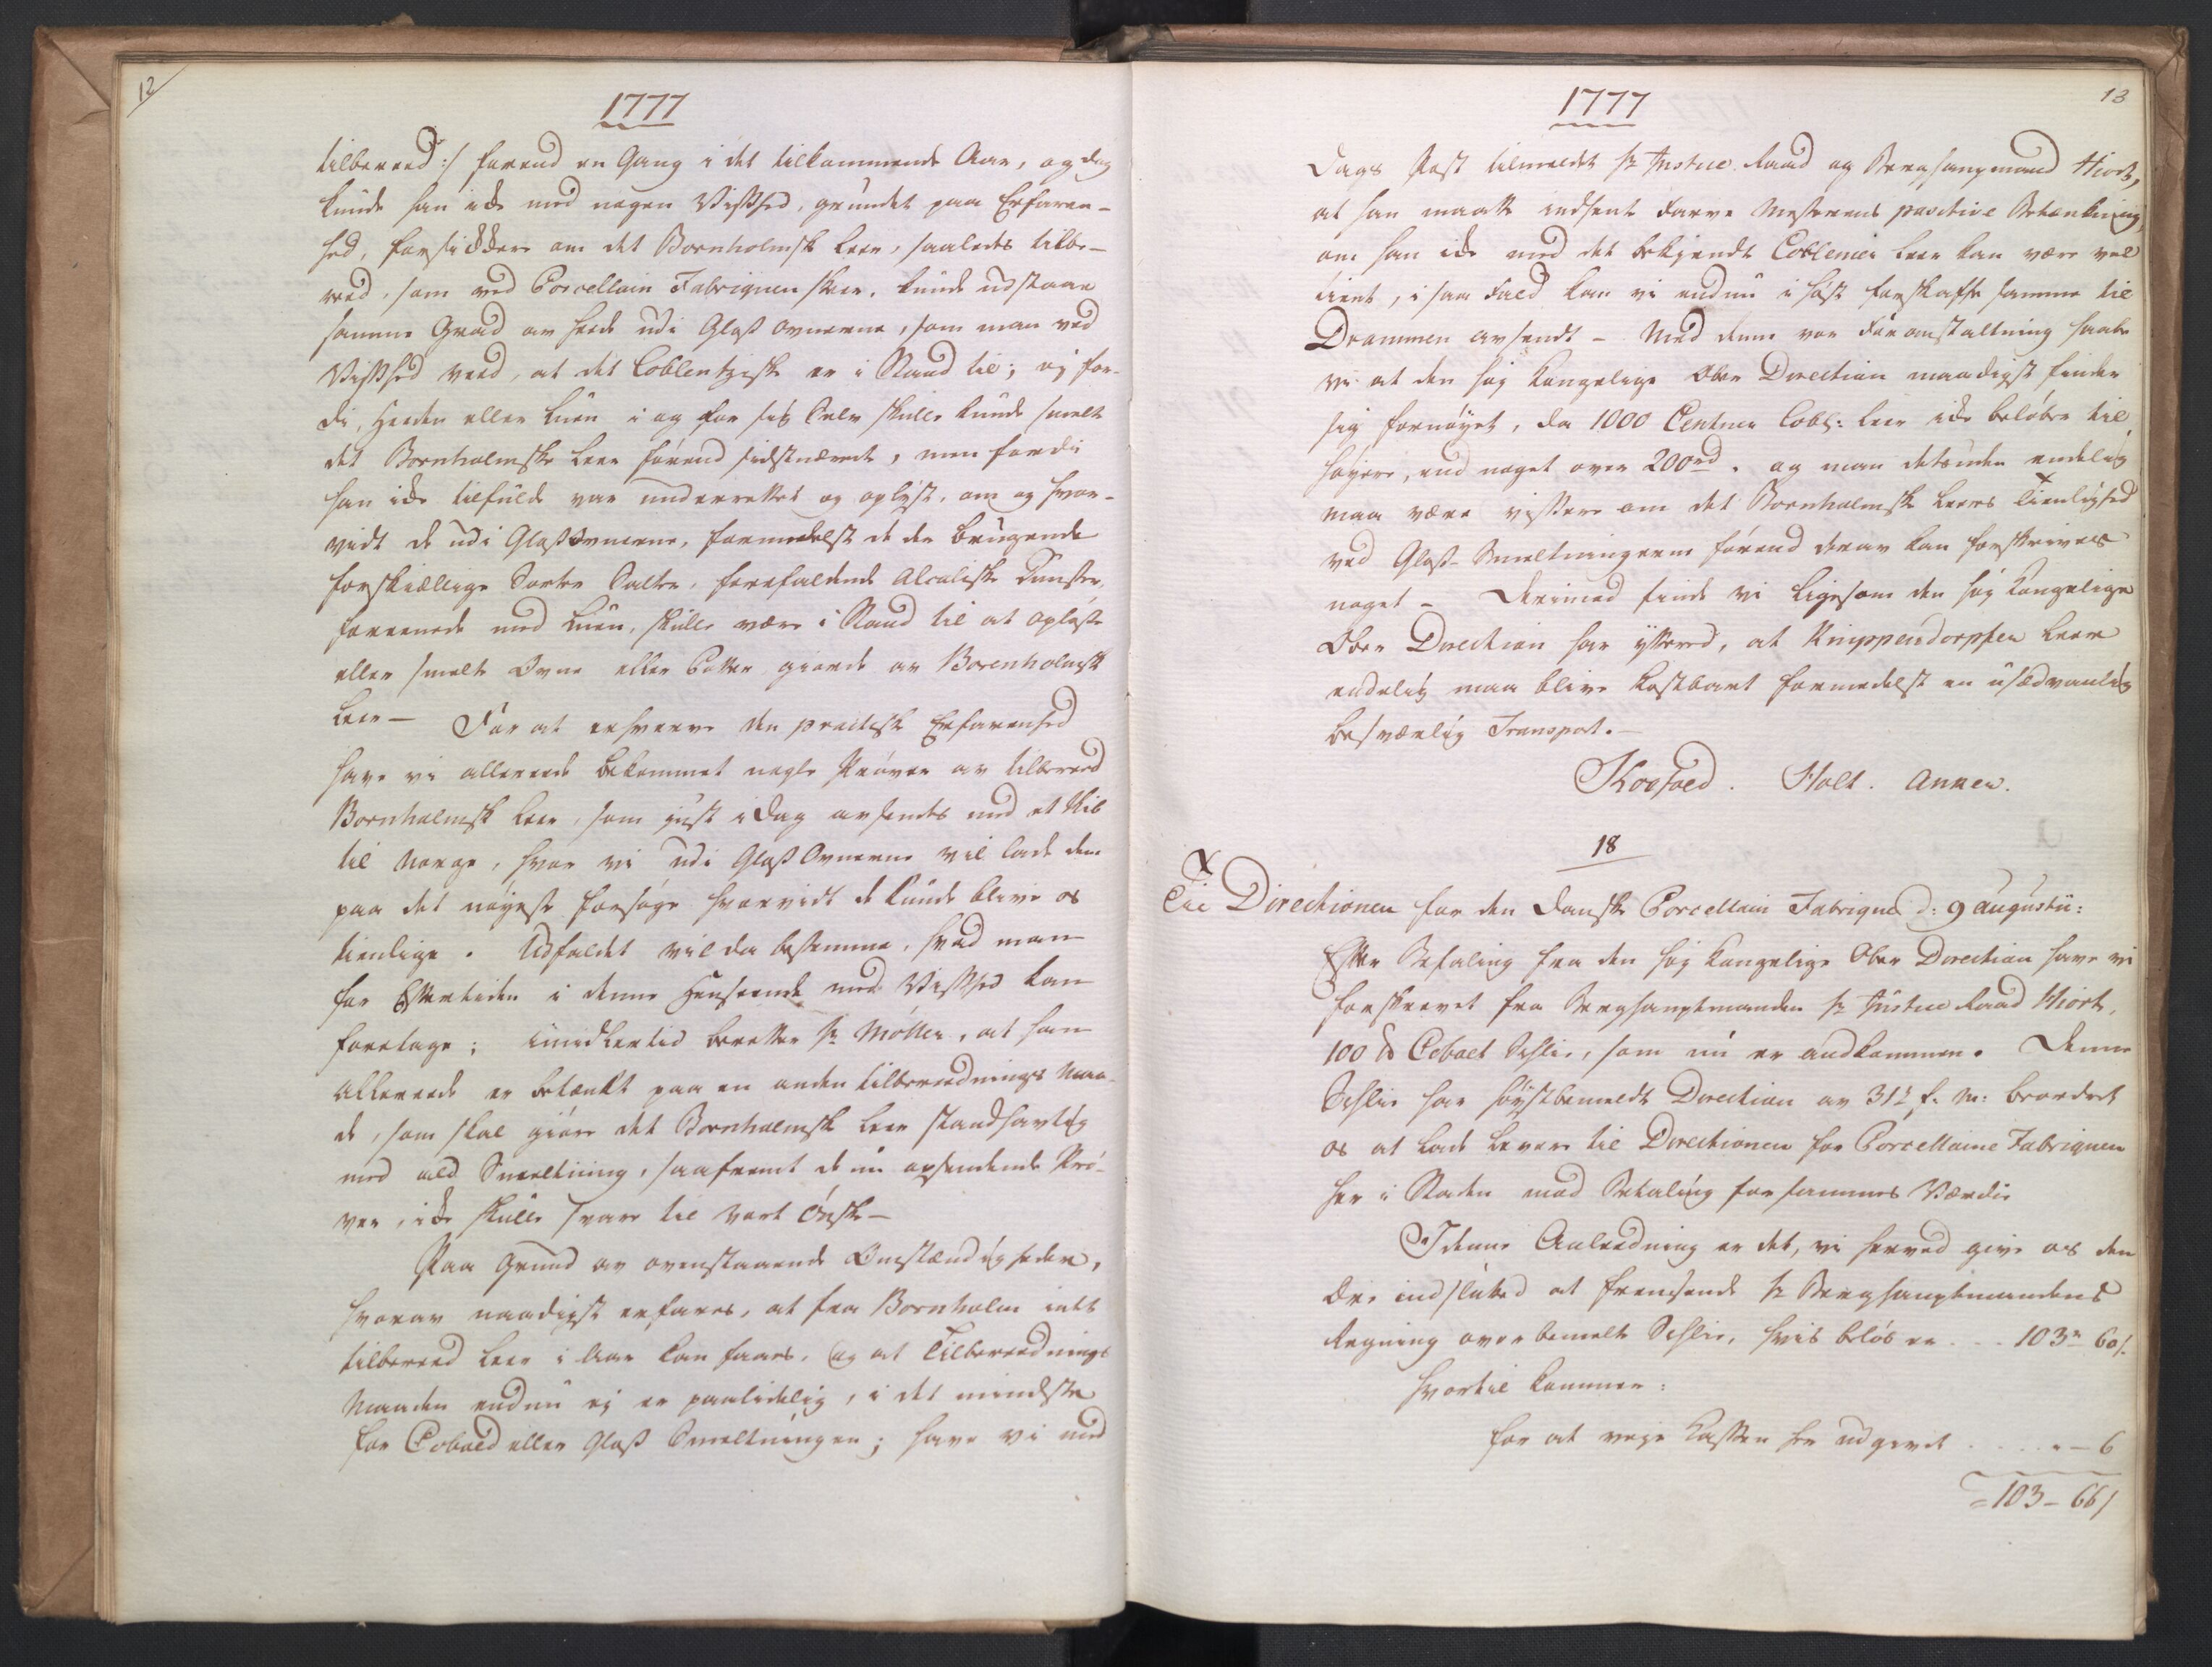 12
1777
tilbereed :/ førend en Gang i det tilkommende Aar, og dog
kunde han icke med nogen Visshed, grundet paa Erfaren-
hed, forsickkre om det Bornholmsk Leer, saaledes tilbe-
reed, som ved Porcellain Fabriquen skeer, kunde udstaae
samme Grad av Heede udi Glass ovnerne, som man ved
Visshed veed, at det Coblentziske er i Stand til; ej for-
di, Heeden eller Luen i og for sig Selv skulle kunde smelte
det Bornholmske Leer førend sidstnævnte, men fordi
han icke tilfulde var underrettet og oplyst, om og hvor-
vidt de udi Glassovnerne, formedelst de der brugende
forskiællige Sorter Salter, forefaldende alcaliske Dunster,
foreenede med Luen, skulle være i Stand til at opløse
eller smelte Ovne eller Potter giorde av Borenholmsk
Leer — For at erhverve den practiske Erfarenhed
have vi allereede bekommet nogle Prøver av tilbereed
Bornholmsk Leer, som just i Dag avsendes med et Skib
til Norge, hvor vi udi Glass Ovnerne vil lade dem
paa det nøyeste forsøge hvorvidt de kunde blive os
tienlige. Udfaldet vil da bestemme, hvad man
for Eftertiden i denne Henseende med Visshed kan
foretage; imidlertid beretter Hr Møller, at han
allereede er betænkt paa en anden tilbereednings Maa-
de, som skal giøre det Bornholmsk Leer standhavtig
mod ald Smeltning, saafremt de nu opsendende Prø-
ver, icke skulle svare til vort Ønske —
Paa Grund av ovenstaaende Omstændigheder,
hvorav naadigst erfares, at fra Bornholm intet
tilbereed Leer i Aar kan faaes, og at Tilbereednings
Maaden endnu ej er paalidelig, i det mindste
for Cobold eller Glass Smeltningen; have vi med
1777
13
Dags Post tilmeldet Hr Justice Raad og Berghauptmand Hiort,
at han maatte indhente Farve Mesterens positive Betænkning,
om han icke med det bekjendte Coblenzer Leer kan være vel
tient, i saa Fald kan vi endnu i Høst forskaffe samme til
Drammen avsendt — Med denne vor Foranstaltning haabe
vi at den høj Kongelige Ober Direction naadigst finder
sig fornøyet, da 1000 Centner Cobl: Leer icke beløber til
høyere, end noget over 200 rd. og man desuden endelig
maa være vissere om det Bornholmske Leers Tienlighed
ved Glass-Smeltningerne førend derav kan forskrives
noget — Derimod finde vi ligesom den høj Kongelige
Ober Direction har ytteret, at Knippendorpfer Leer
endelig maa blive kostbart formedelst en usædvanlig
besværlig Transport. —
Koefoed. Holt. Anker.
18
X
Til Directionen for den Danske Porcellain Fabrique d: 9 Augustii:
Efter Befaling fra den høj Kongelige Ober Direction have vi
forskrevet fra Berghauptmanden Hr Justice Raad Hiort,
100 lb Cobolt Schlir, som nu er andkommen. Denne
Schlir har høystbemeldte Direction av 31te f. M: beordret
os at lade levere til Directionen for Porcellaine Fabriquen
her i Staden mod Betaling for sammes Værdie
I denne Anleedning er det, vi herved give os den
Ære indsluted at fremsende Hr Berghauptmandens
Regning over bemelte Schlir, hvis beløb er . . . 103 rd 60 s.
hvortil kommer:
for at veye Kassen her udgivet . . . . . " — 6
= 103 – 66 s